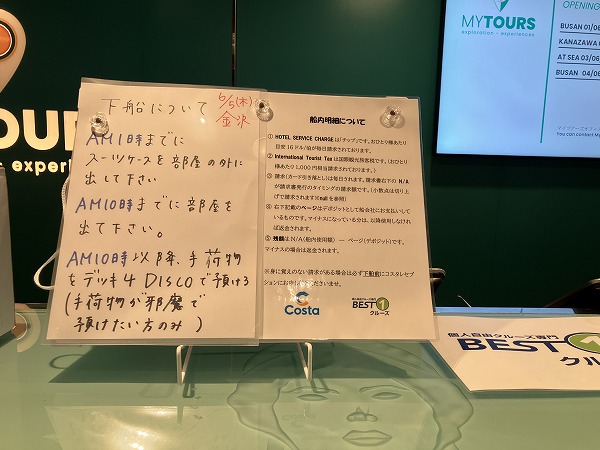 下船について
6/5(木)
金沢
AM1時までに
スーツケースを部屋の外に
出して下さい
AM10時までに部屋を
出て下さい。
AM10時以降、手荷物
をデッキ4 DISCOで預ける
(手荷物が邪魔で
預けたい方のみ)
船内明細について
① HOTEL SERVICE CHARGEは「チップ」です。おひとり様あたり
目安16ドル/泊が毎日請求されております。
② International Tourist Taxは国際観光旅客税です。(おひとり
様あたり1,000円相当請求されております。)
③ 請求(カード引き落とし)は毎日されます。請求書右下のN/A
が請求書発行のタイミングの請求額です。(小数点は切り上
げで請求されます
を参照)
④ 右下記載のページはデポジットとして船会社にお支払いして
いるものです。マイナスになっている分は、以降使用しなけれ
ば返金されます。
⑤ 残額はN/A(船内使用様) ― ページ(デポジット)です。
マイナスの場合は返金されます。
※身に覚えのない請求がある場合は必ず下船前にコスタレセ
プションにお
ださいませ。
Costa
個人自由クルーズ専門
BEST1
クルーズ
個人自由クルーズ専門
BEST1
クル
TOURS
experien
MYTOURS
exploration - experiences
OPENING
BUSAN 01/06
KANAZAWA 0
AT SEA 03/06
BUSAN 04/06
You can contact My